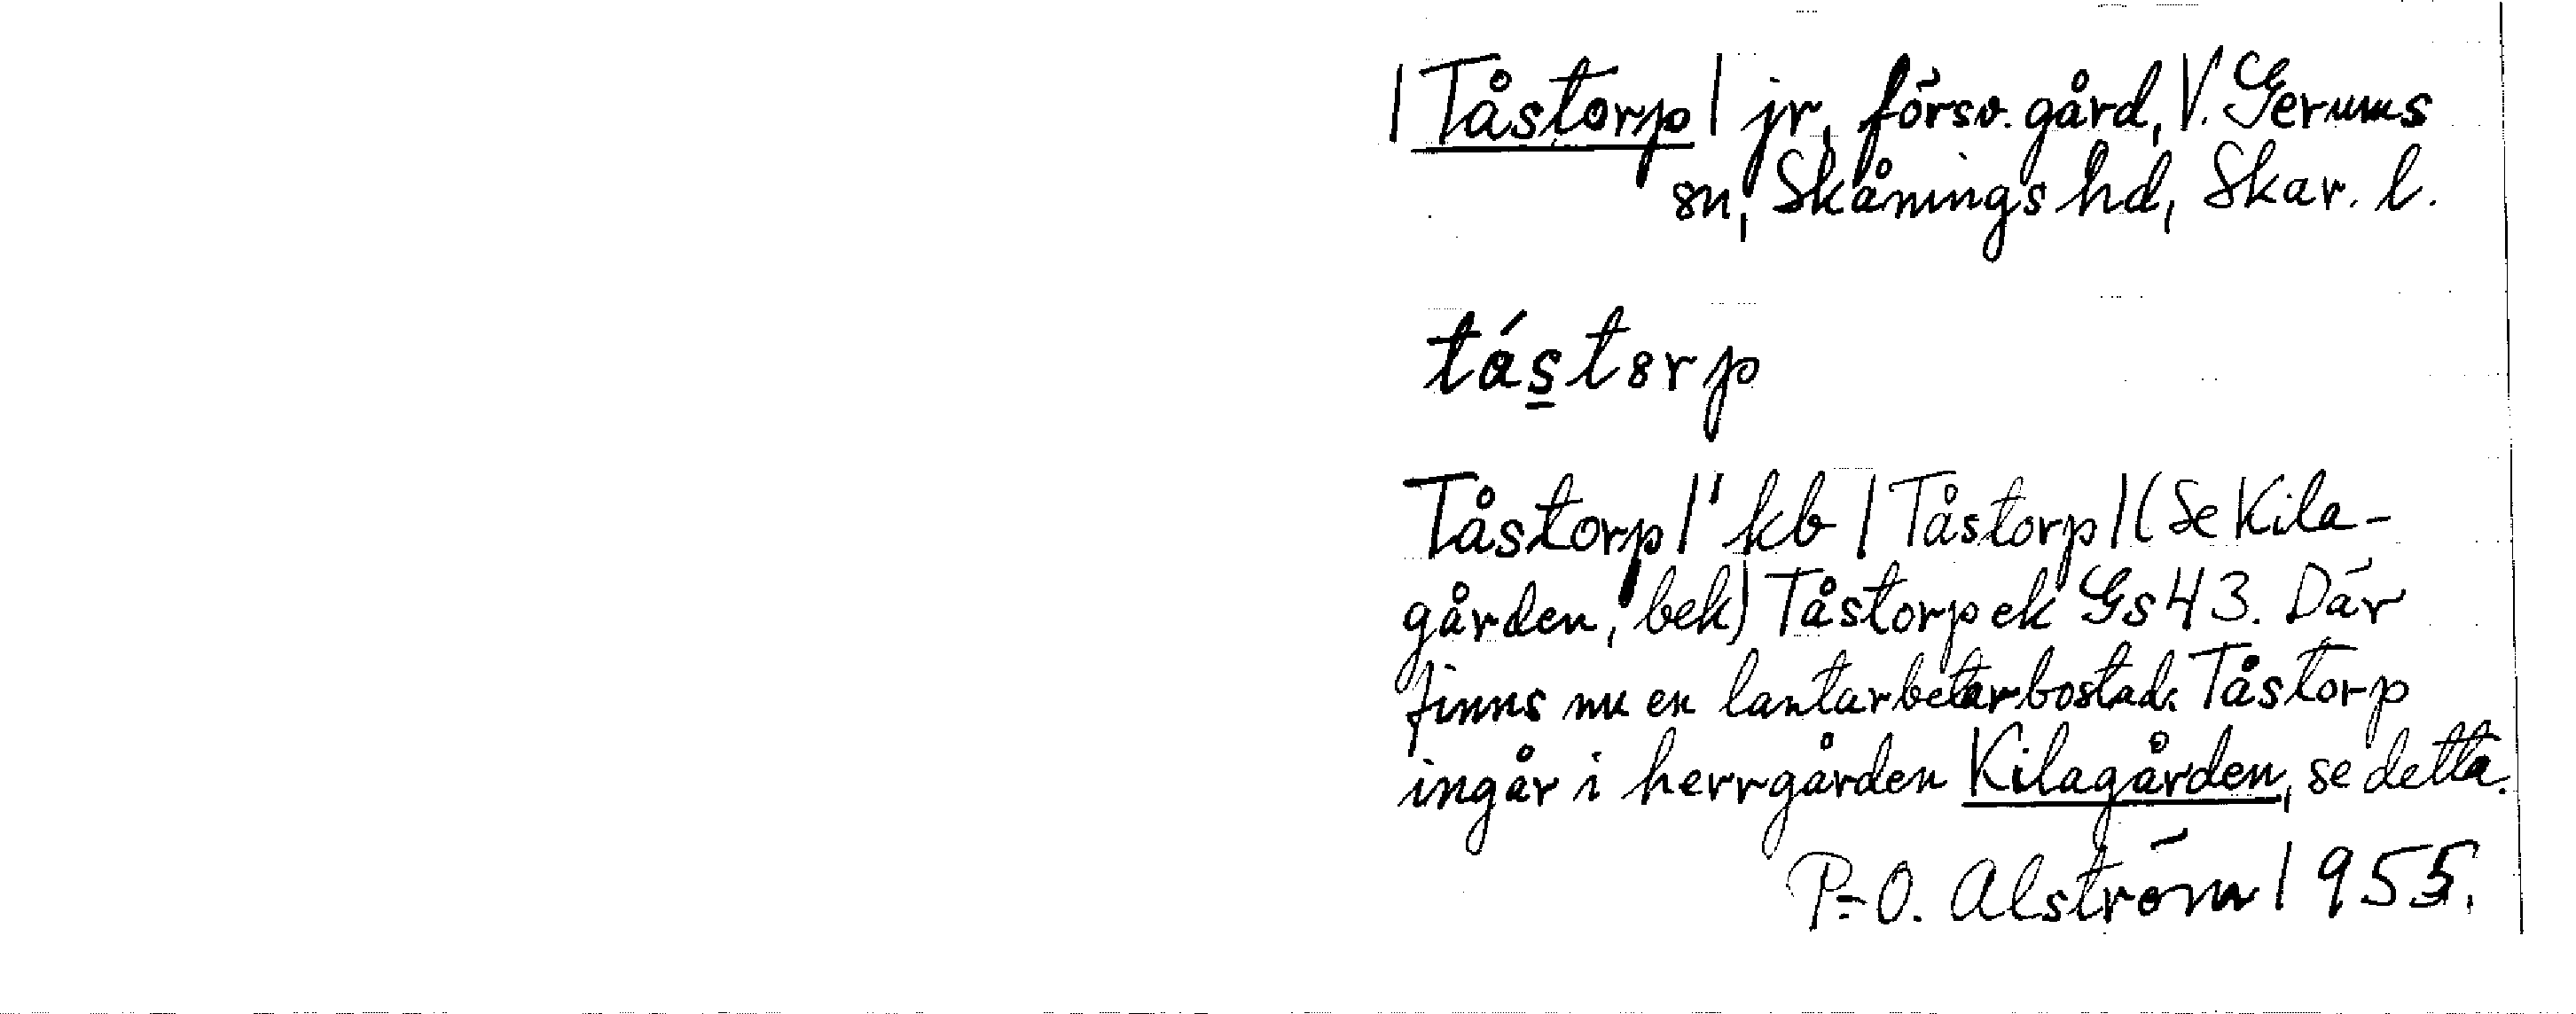 | Tåstorp | jr, försv. gård, V. Gerums
sn, Skånings hd, Skar. l.
tástorp
Tåstorp |" kb | Tåstorp | (Se Kila-
gården, bek) Tåstorp ek Gs43. Där
finns nu en lantarbetarbostad. Tåstorp
ingår i herrgården Kilagården, se detta.
P-O. Alström 1955.